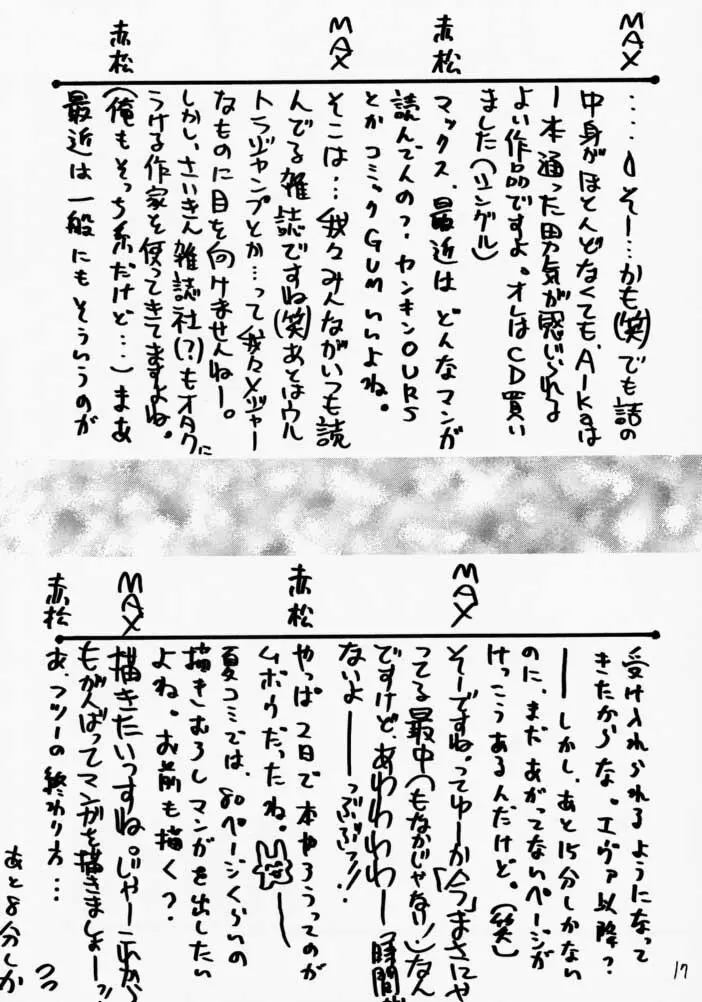 MAX
‥‥うそー…かも(笑)でも話の
中身がほとんどなくても、AIKaは
1本通った男気が感じられる
よい作品ですよ。オレはCD買い
ました(シングル)
赤松
マックス、最近はどんなマンガ
読んでんの?ヤンキンOURS
とかコミックGUMいいよね。
MAX
そこは…我々みんながいつも読
んでる雑誌ですね(笑)あとはウル
トラジャンプとか…って我々メジャー
なものに目を向けませんねー。
赤松
しかし、さいきん雑誌社(?)もオタクに
うける作家を使ってきてますよね。
(俺もそっち系だけど…)まあ
最近は一般にもそういうのが
受け入れられるようになって
きたからな。エヴァ以降?
――しかし、あと15分しかない
のに、まだあがってないページが
けっこうあるんだけど。(笑)
MAX
そーですね。ってゆーか「今」まさにや
ってる最中(もなかじゃない!)なん
ですけど、あわわわわー
時間が
ないよ――っぷぷっ!!
赤松
やっぱ2日で本やろうってのが
ムボウだったね。――
夏コミでは、80ページくらいの
描きむろしマンガを出したい
よね。お前も描く?
MAX
描きたいっすね。じゃーこれから
もがんばってマンガを描きましょー!!
赤松
あ、フツーの終わり方…
あと8分しか
17